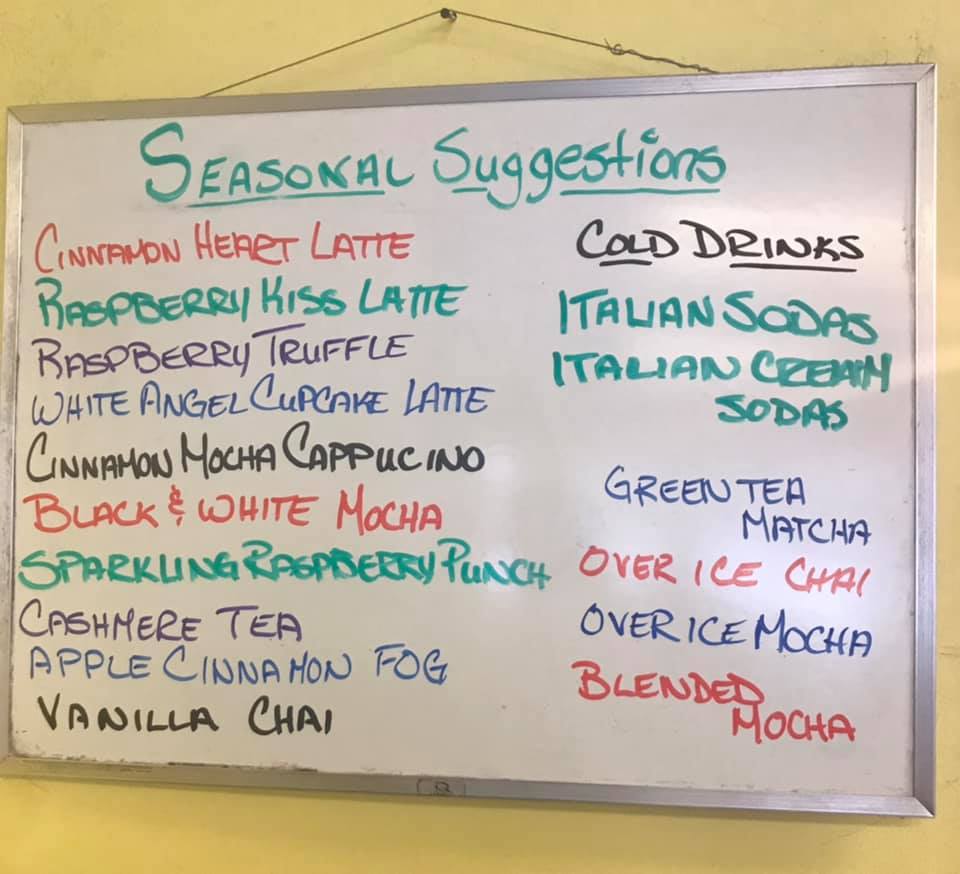 SEASONAL Suggestions
CINNAMON HEART LATTE
RASPBERRY KISS LATTE
RASPBERRY TRUFFLE
WHITE ANGEL CUPCAKE LATTE
CINNAMON MOCHA CAPPUCINO
BLACK & WHITE MOCHA
SPARKLING RASPBERRY PUNCH
CASHMERE TEA
APPLE CINNAMON FOG
VANILLA CHAI
COLD DRINKS
ITALIAN SODAS
ITALIAN CREAM
SODAS
GREEN TEA
MATCHA
OVER ICE CHAI
OVER ICE MOCHA
BLENDED
MOCHA